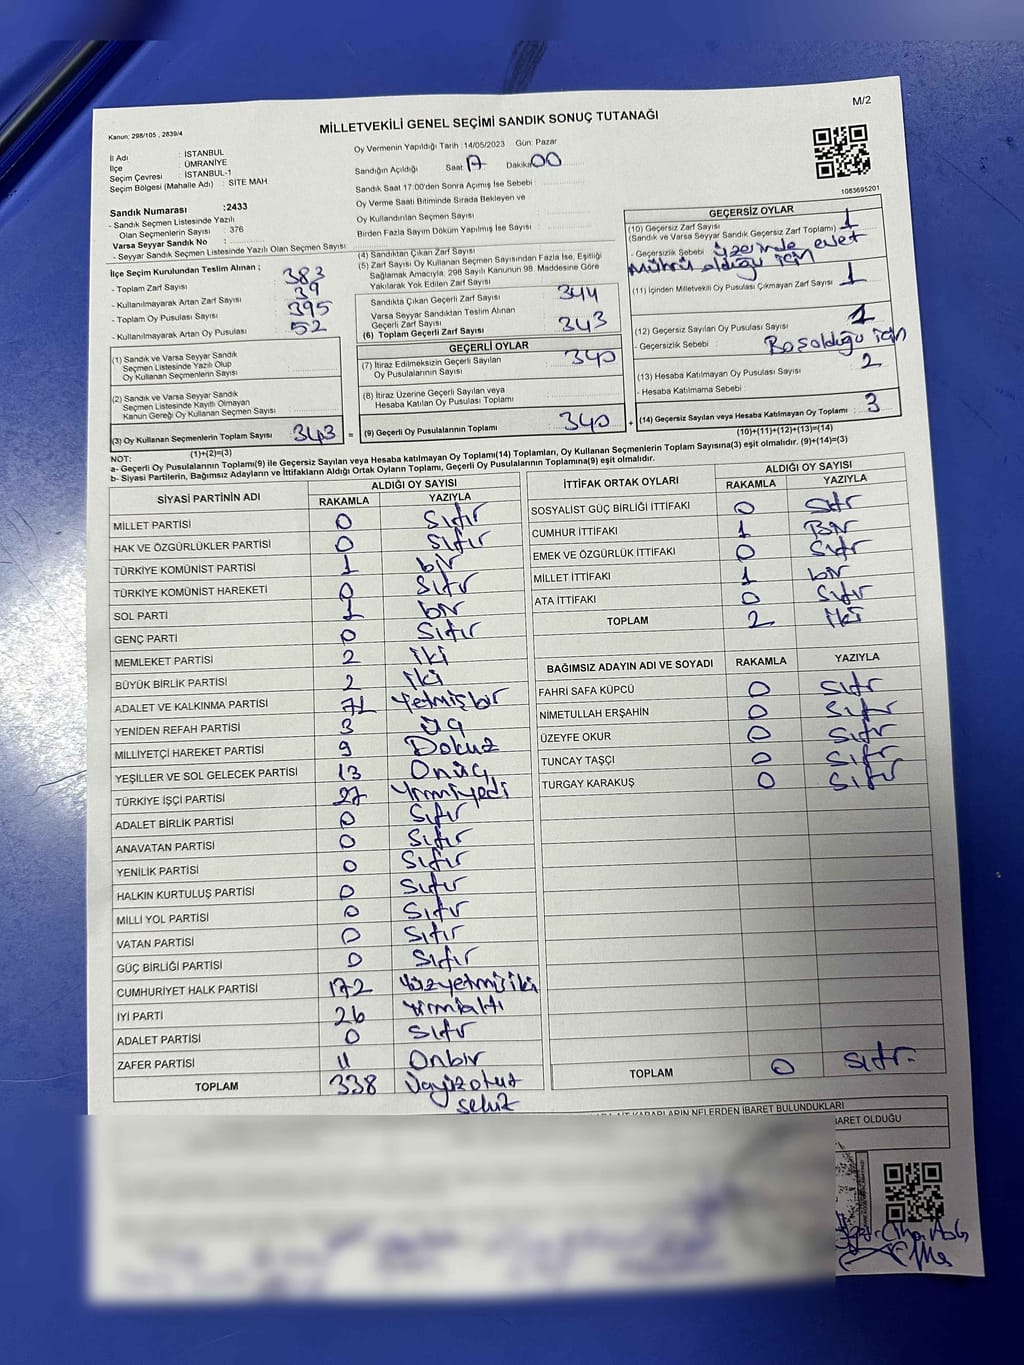 M/2
Kanun; 298/105 , 2839/4
MİLLETVEKİLİ GENEL SEÇİMİ SANDIK SONUÇ TUTANAĞI
İl Adı : İSTANBUL
İlçe : ÜMRANİYE
Seçim Çevresi : İSTANBUL-1
Seçim Bölgesi (Mahalle Adı) : SİTE MAH
Sandık Numarası :2433
- Sandık Seçmen Listesinde Yazılı
Olan Seçmenlerin Sayısı : 376
Varsa Seyyar Sandık No :
- Seyyar Sandık Seçmen Listesinde Yazılı Olan Seçmen Sayısı:
Oy Vermenin Yapıldığı Tarih :14/05/2023 Gün: Pazar
Sandığın Açıldığı Saat 17 Dakika:00
Sandık Saat 17:00'den Sonra Açımış İse Sebebi :
Oy Verme Saati Bitiminde Sırada Bekleyen ve
Oy Kullandırılan Seçmen Sayısı :
Birden Fazla Sayım Döküm Yapılmış İse Sayısı :
1083695201
İlçe Seçim Kurulundan Teslim Alınan ;
- Toplam Zarf Sayısı : 383
- Kullanılmayarak Artan Zarf Sayısı : 39
- Toplam Oy Pusulası Sayısı : 395
- Kullanılmayarak Artan Oy Pusulası : 52
(1) Sandık ve Varsa Seyyar Sandık
Seçmen Listesinde Yazılı Olup
Oy Kullanan Seçmenlerin Sayısı :
(2) Sandık ve Varsa Seyyar Sandık
Seçmen Listesinde Kayıtlı Olmayan
Kanun Gereği Oy Kullanan Seçmen Sayısı :
(3) Oy Kullanan Seçmenlerin Toplam Sayısı : 343 =
(1)+(2)=(3)
(4) Sandıktan Çıkan Zarf Sayısı :
(5) Zarf Sayısı Oy Kullanan Seçmen Sayısından Fazla İse, Eşitliği
Sağlamak Amacıyla, 298 Sayılı Kanunun 98. Maddesine Göre
Yakılarak Yok Edilen Zarf Sayısı :
Sandıkta Çıkan Geçerli Zarf Sayısı : 344
Varsa Seyyar Sandıktan Teslim Alınan
Geçerli Zarf Sayısı :
(6) Toplam Geçerli Zarf Sayısı : 343
GEÇERLİ OYLAR
(7) İtiraz Edilmeksizin Geçerli Sayılan
Oy Pusulalarının Sayısı : 340
(8) İtiraz Üzerine Geçerli Sayılan veya
Hesaba Katılan Oy Pusulası Toplamı :
(9) Geçerli Oy Pusulalarının Toplamı : 340 +
GEÇERSİZ OYLAR
(10) Geçersiz Zarf Sayısı
(Sandık ve Varsa Seyyar Sandık Geçersiz Zarf Toplamı) : 1
- Geçersizlik Sebebi : üzerinde evet
Mührü olduğu için
(11) İçinden Milletvekili Oy Pusulası Çıkmayan Zarf Sayısı : 1
(12) Geçersiz Sayılan Oy Pusulası Sayısı : 1
- Geçersizlik Sebebi : Boş olduğu için
(13) Hesaba Katılmayan Oy Pusulası Sayısı : 2
- Hesaba Katılmama Sebebi :
(14) Geçersiz Sayılan veya Hesaba Katılmayan Oy Toplamı : 3
(10)+(11)+(12)+(13)=(14)
NOT:
a- Geçerli Oy Pusulalarının Toplamı(9) ile Geçersiz Sayılan veya Hesaba katılmayan Oy Toplamı(14) Toplamları, Oy Kullanan Seçmenlerin Toplam Sayısına(3) eşit olmalıdır. (9)+(14)=(3)
b- Siyasi Partilerin, Bağımsız Adayların ve İttifakların Aldığı Ortak Oyların Toplamı, Geçerli Oy Pusulalarının Toplamına(9) eşit olmalıdır.
SİYASİ PARTİNİN ADI ALDIĞI OY SAYISI
RAKAMLA YAZIYLA
MİLLET PARTİSİ 0 Sıfır
HAK VE ÖZGÜRLÜKLER PARTİSİ 0 Sıfır
TÜRKİYE KOMÜNİST PARTİSİ 1 bir
TÜRKİYE KOMÜNİST HAREKETİ 0 Sıfır
SOL PARTİ 1 bir
GENÇ PARTİ 0 Sıfır
MEMLEKET PARTİSİ 2 iki
BÜYÜK BİRLİK PARTİSİ 2 iki
ADALET VE KALKINMA PARTİSİ 71 Yetmişbir
YENİDEN REFAH PARTİSİ 3 üç
MİLLİYETÇİ HAREKET PARTİSİ 9 Dokuz
YEŞİLLER VE SOL GELECEK PARTİSİ 13 Onüç
TÜRKİYE İŞÇİ PARTİSİ 27 Yirmiyedi
ADALET BİRLİK PARTİSİ 0 Sıfır
ANAVATAN PARTİSİ 0 Sıfır
YENİLİK PARTİSİ 0 Sıfır
HALKIN KURTULUŞ PARTİSİ 0 Sıfır
MİLLİ YOL PARTİSİ 0 Sıfır
VATAN PARTİSİ 0 Sıfır
GÜÇ BİRLİĞİ PARTİSİ 0 Sıfır
CUMHURİYET HALK PARTİSİ 172 Yüzyetmişiki
İYİ PARTİ 26 Yirmialtı
ADALET PARTİSİ 0 Sıfır
ZAFER PARTİSİ 11 Onbir
TOPLAM 338 Üçyüzotuz
sekiz
İTTİFAK ORTAK OYLARI ALDIĞI OY SAYISI
RAKAMLA YAZIYLA
SOSYALİST GÜÇ BİRLİĞİ İTTİFAKI 0 Sıfır
CUMHUR İTTİFAKI 1 Bir
EMEK VE ÖZGÜRLÜK İTTİFAKI 0 Sıfır
MİLLET İTTİFAKI 1 bir
ATA İTTİFAKI 0 Sıfır
TOPLAM 2 iki
BAĞIMSIZ ADAYIN ADI VE SOYADI RAKAMLA YAZIYLA
FAHRİ SAFA KÜPCÜ 0 Sıfır
NİMETULLAH ERŞAHİN 0 Sıfır
ÜZEYFE OKUR 0 Sıfır
TUNCAY TAŞÇI 0 Sıfır
TURGAY KARAKUŞ 0 Sıfır
TOPLAM 0 Sıfır
KARARLARIN NELERDEN İBARET BULUNDUKLARI
BARET OLDUĞU